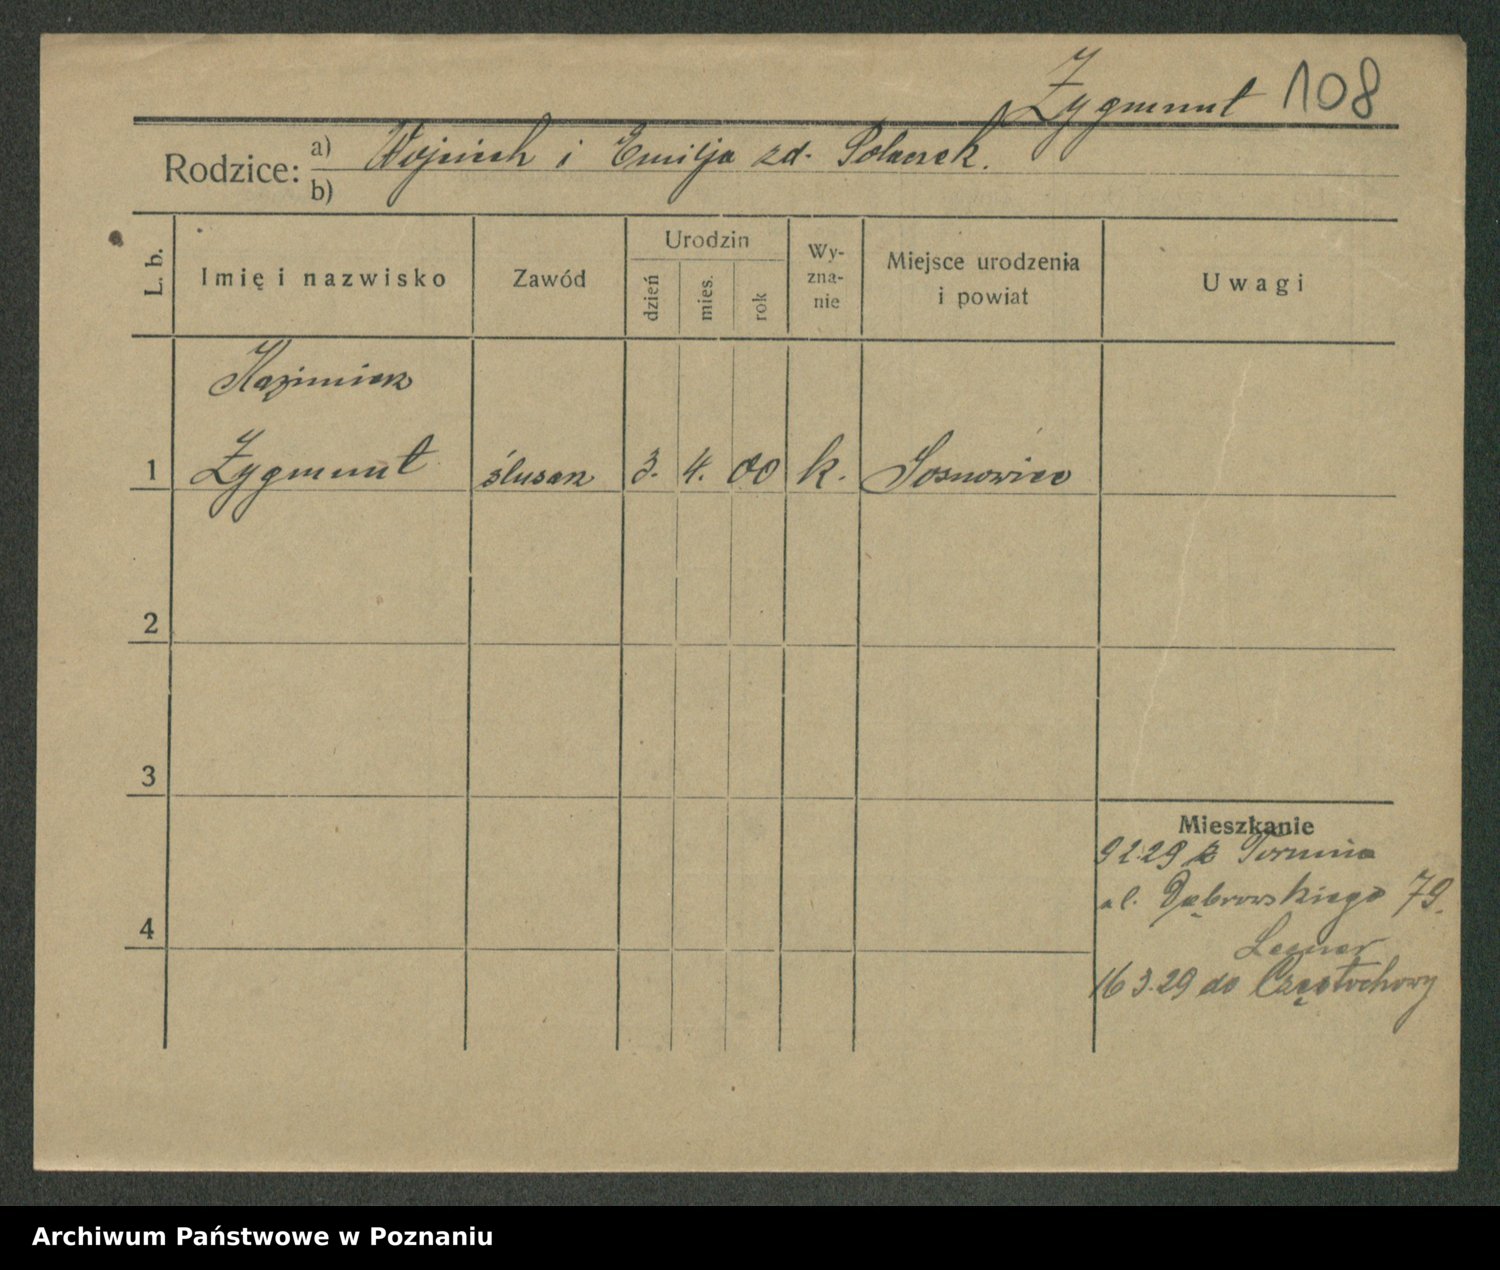 Zygmunt 108
Rodzice: a) Wojciech i Emilja zd. Polaczek.
b)
L. b. Imię i nazwisko Zawód Urodzin dzień mies. rok Wyznanie Miejsce urodzenia i powiat Uwagi
Kazimierz
1 Zygmunt ślusarz 3. 4. 00 k. Sosnowiec
2
3
Mieszkanie
9 2.29 z Torunia
al. Dąbrowskiego 79.
4
16 3.29 do Częstochowy
Archiwum Państwowe w Poznaniu